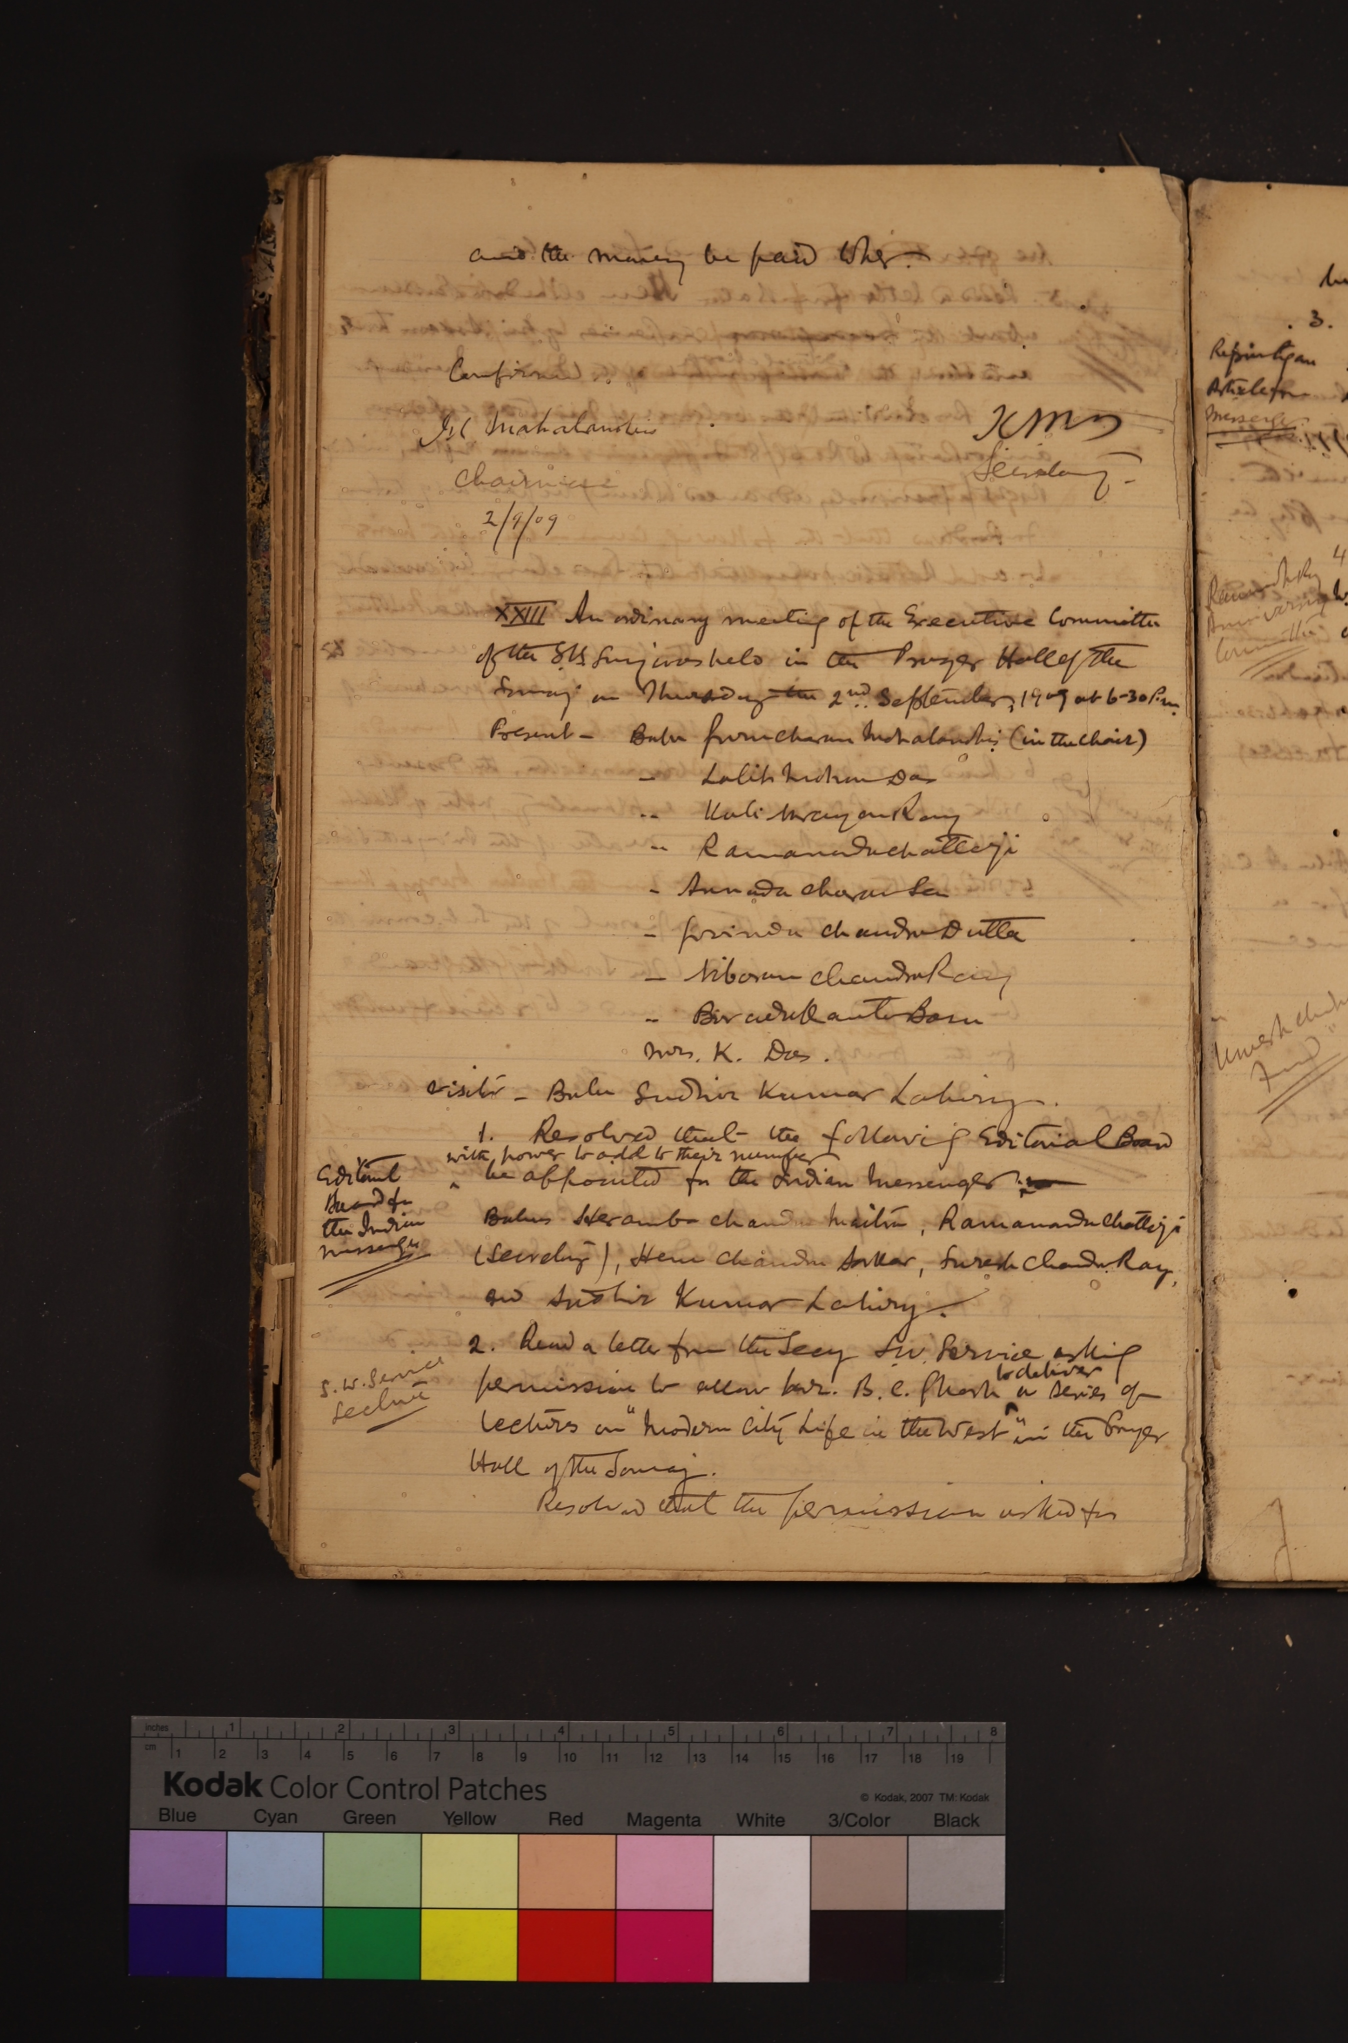 and the money be paid to her.
Confirmed.
G C Mahalanobis
Chairman
2/9/09
Secretary
XXIII An ordinary meeting of the Executive Committee
of the S.B. Samaj was held in the Prayer Hall of the
Samaj on Thursday the 2nd September, 1909 at 6-30 P.m.
Present - Babu Gurucharan Mahalanobis (in the chair)
" Lalit Mohan Das
" Kali Narayan Ray
" Ramananda Chatterji
" Annada Charan Sen
" Govinda Chandra Dutta
" Nibaran Chandra Ray
" Barada Kanta Basu
Mrs. K. Das.
Visitor - Babu Sudhir Kumar Lahiry.
Editorial
Board for
the Indian
Messenger
1. Resolved that the following Editorial Board
with power to add to their number
be appointed for the Indian Messenger :-
Babus Heramba Chandra Maitra, Ramananda Chatterji
(Secretary), Hem Chandra Sarkar, Suresh Chandra Ray,
and Sudhir Kumar Lahiry.
S. W. Service
Lecture
2. Read a letter from the Secy S.W. Service asking
permission to allow Mr. B. C. Ghosh to deliver a series of
lectures on "Modern City Life in the West" in the Prayer
Hall of the Samaj.
Resolved that the permission asked for
3.
Reprinting an
Article from
Messenger
4
Committee
Umesh Chandra
Fund
inches 1 2 3 4 5 6 7 8
cm 1 2 3 4 5 6 7 8 9 10 11 12 13 14 15 16 17 18 19
Kodak Color Control Patches
© Kodak, 2007 TM: Kodak
Blue Cyan Green Yellow Red Magenta White 3/Color Black